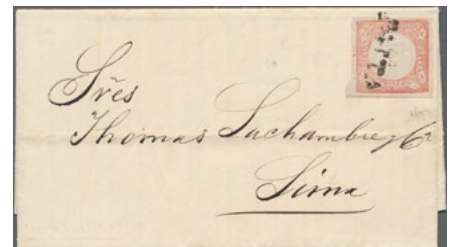 Sres
Thomas Lachambre y Ca
Lima